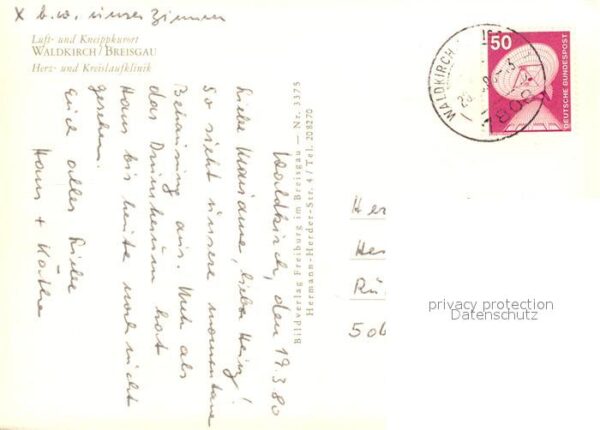 x b.w. unser Zimmer
Luft- und Kneippkurort
WALDKIRCH / BREISGAU
Herz- und Kreislaufklinik
Waldkirch, den 19.3.80
Liebe Marianne, lieber Heinz!
So sieht unsere momentane
Behausung aus. Mehr als
das Drumherum hat
Haus bis heute noch nicht
gesehen.
Euch alles Liebe
Hans + Käthe
Bildverlag Freiburg im Breisgau — Nr. 3375
Hermann-Herder-Str. 4 / Tel. 208270
WALDKIRCH
50
DEUTSCHE BUNDESPOST
Her
He
Rü
506
privacy protection
Datenschutz